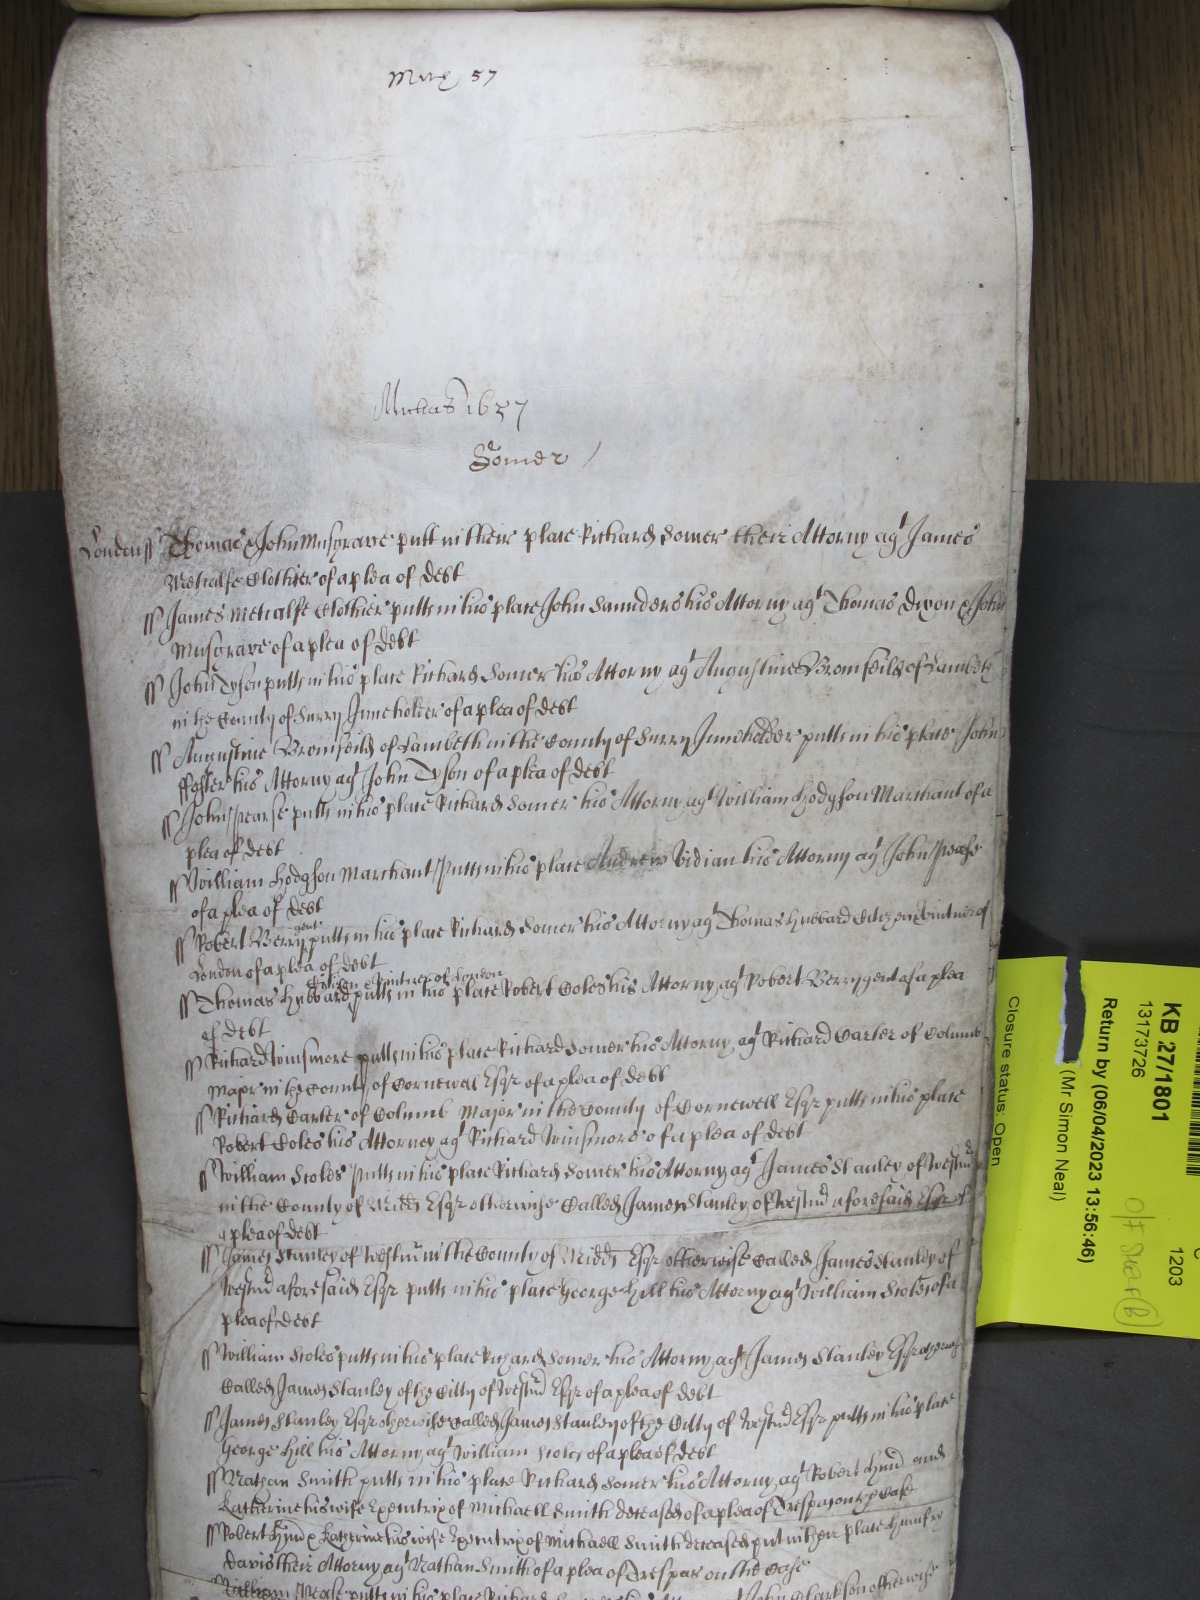 Mich 57
Michas 1657
Somer
London ss Thomas & John Musgrave putt in their place Richard Somer their Attorny agt James
Metcalfe Clothier of a plea of debt
ss James Metcalfe Clothier putts in his place John Saunders his Attorny agt Thomas Dixon & John
Musgrave of a plea of debt
ss John Tyson putts in his place Richard Somer his Attorny agt Augustine Bromfeild of Lambeth
in the County of Surry Inneholder of a plea of debt
ss Augustine Bromfeild of Lambeth in the County of Surry Inneholder putts in his place John
ffoster his Attorny agt John Tyson of a plea of debt
ss John Pearse putts in his place Richard Somer his Attorny agt William Hodgson Marchant of a
plea of debt
ss William Hodgson Marchant putts in his place Andrew Vidian his Attorny agt John Pearse
of a plea of debt
ss Robert Berry gent putts in his place Richard Somer his Attorny agt Thomas Hubbard Citizen & Vintner of
London of a plea of debt
Citizen & Vintner of London
ss Thomas Hubbard putts in his place Robert Coles his Attorny agt Robert Berry gent of a plea
of debt
ss Richard Winsmore putts in his place Richard Somer his Attorny agt Richard Carter of Columb
Major in the County of Cornewal Esqr of a plea of debt
ss Richard Carter of Columb Major in the County of Cornewell Esqr putts in his place
Robert Coles his Attorney agt Richard Winsmore of a plea of debt
ss William Stoles putts in his place Richard Somer his Attorny agt James Stanley of Westmr
in the County of Midd Esqr otherwise Called James Stanley of Westmr aforesaid Esqr of
a plea of debt
ss James Stanley of Westmr in the County of Midd Esqr otherwise Called James Stanley of
Westmr aforesaid Esqr putts in his place George Hill his Attorny agt William Stoles of a
plea of debt
ss William Stoles putts in his place Richard Somer his Attorny agt James Stanley Esqr
Called James Stanley of the Citty of Westmr Esqr of a plea of debt
ss James Stanley Esqr otherwise Called James Stanley of the Citty of Westmr Esqr putts in his place
George Hill his Attorny agt William Stoles of a plea of debt
ss Nathan Smith putts in his place Richard Somer his Attorny agt Robert Hind and
Katherine his wife Executrix of Michaell Smith deceased of a plea of Trespas on the Case
ss Robert Hind & Katherine his wife Executrix of Michaell Smith deceased put in their place Humfry
Davis their Attorny agt Nathan Smith of a plea of Trespas on the Case
William putts in his place Richard John Clarkson otherwise
KB 27/1801
13173726
Return by (06/04/2023 13:56:46)
(Mr Simon Neal)
Closure status: Open
1203